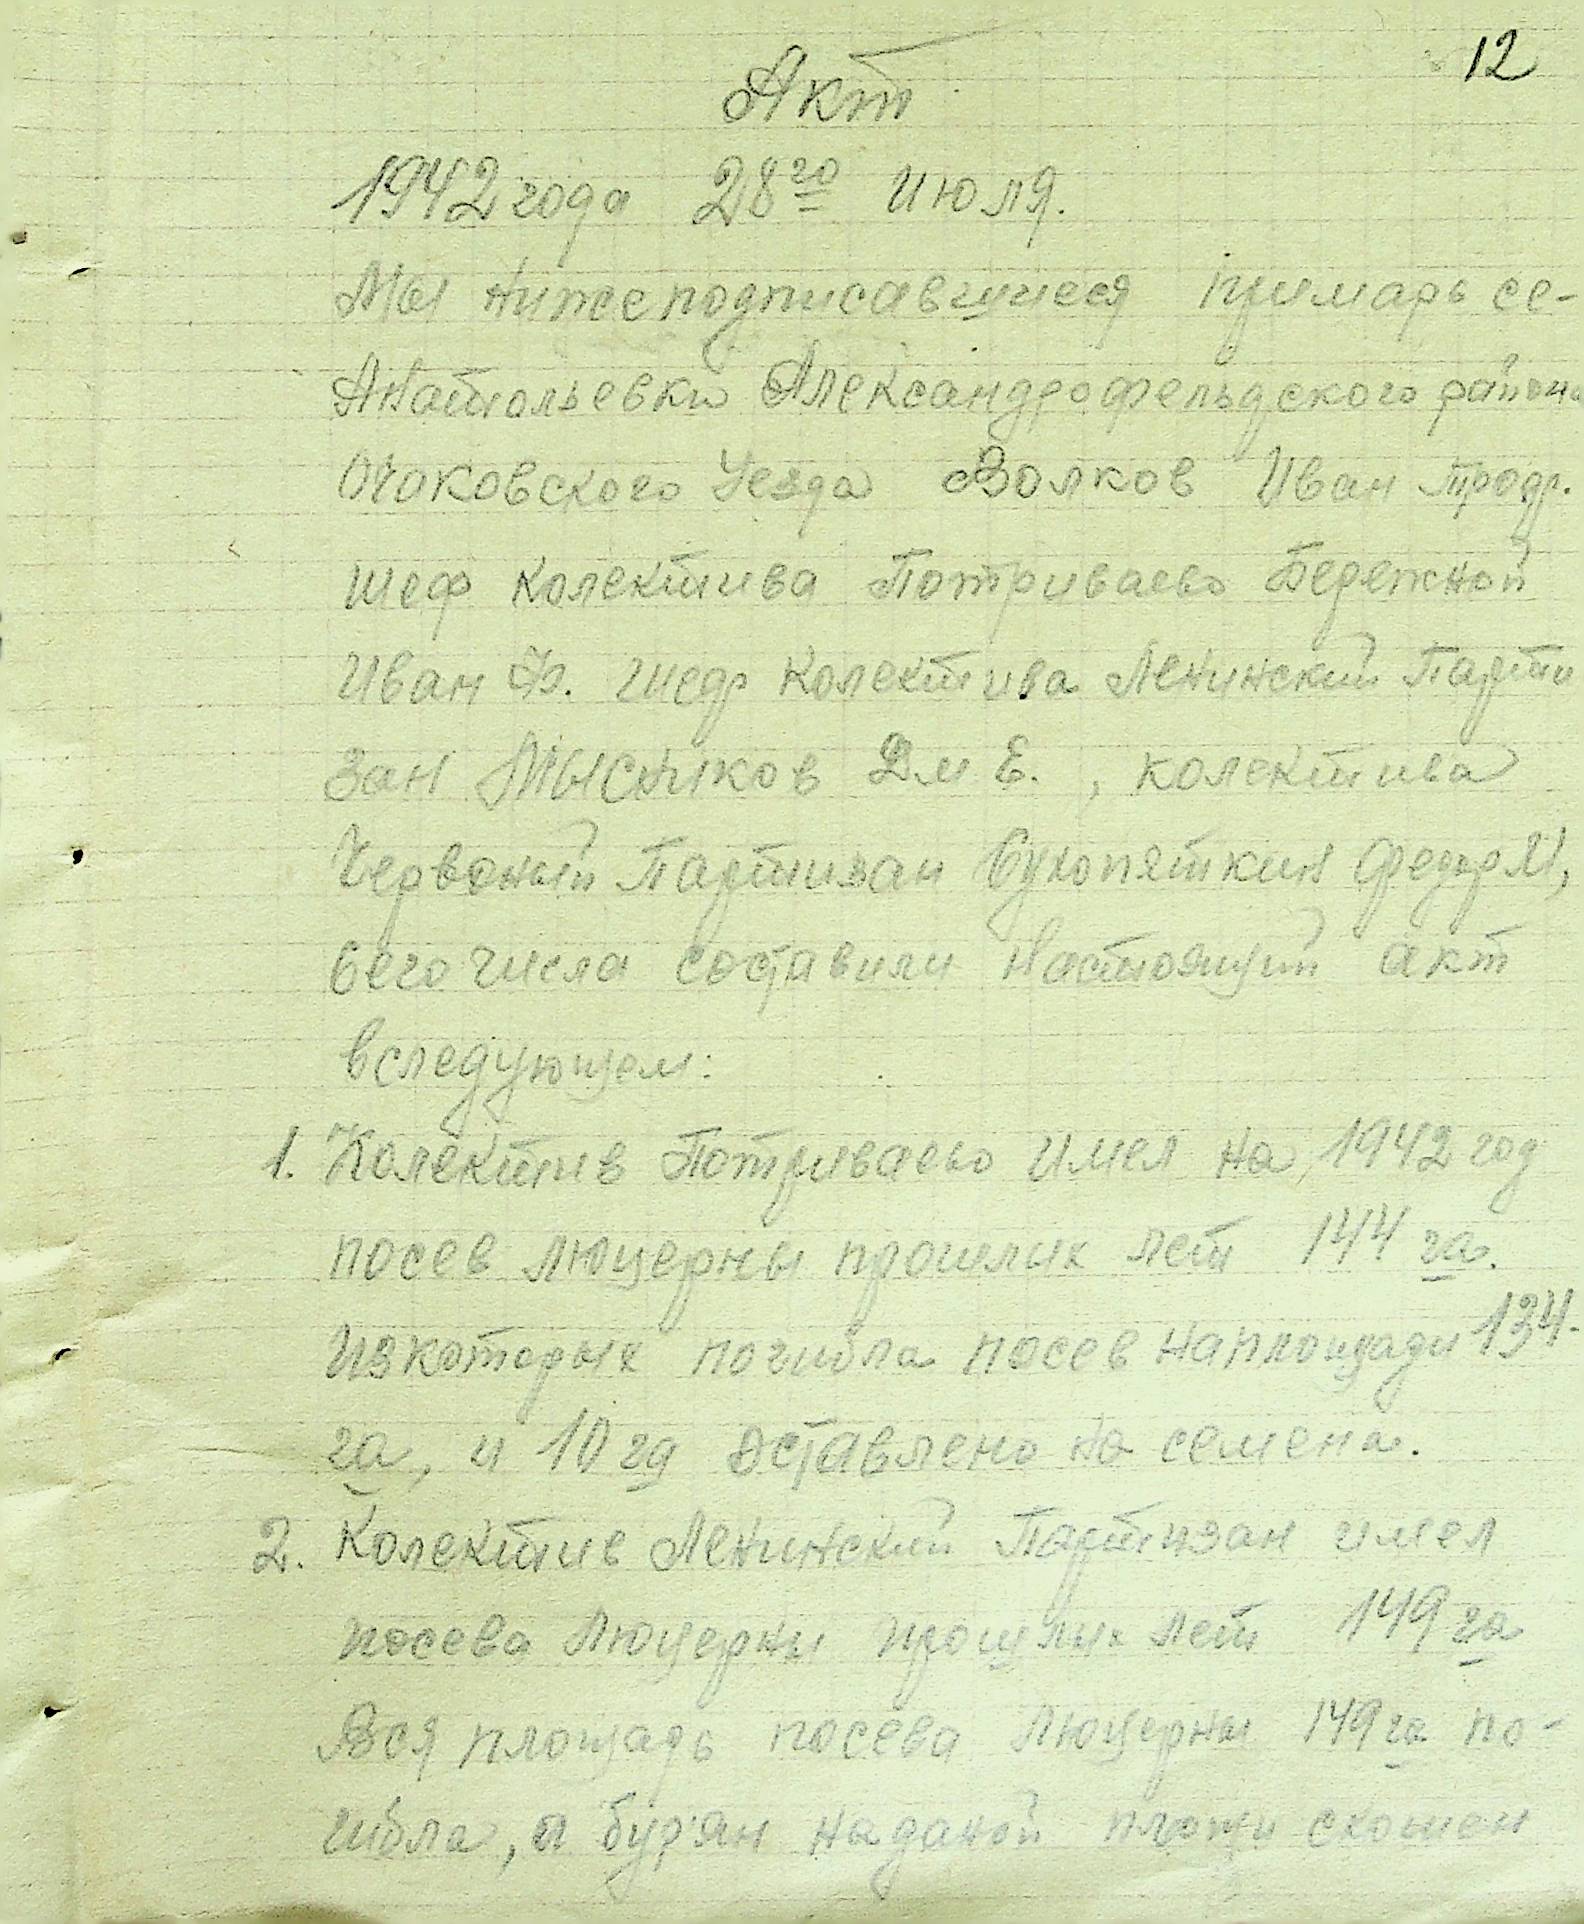 12
Акт
1942 года 28го июля.
Мы нижеподписавшиеся примарь се-
Анатольевки Александрофельдского района
Очаковского Уезда Волков Иван
шеф колектива Потриваево Бережной
Иван Ф. шеф колектива Ленинский Парти
зан Мысников Дм Е. , колектива
Червоный Партизан Сухопяткин Федор И,
Сего числа составили настоящий акт
вследующем:
1. Колектив Потриваево имел на 1942 год
посев люцерны прошлих лет 144 га.
Изкоторых погибла посев наплощади 134-
га, и 10 га оставлено на семена.
2. Колектив Ленинский Партизан имел
посева люцерны прошлих лет 149 га
Вся площадь посева люцерны 149 га по-
гибла, а бур'ян наданой скошен